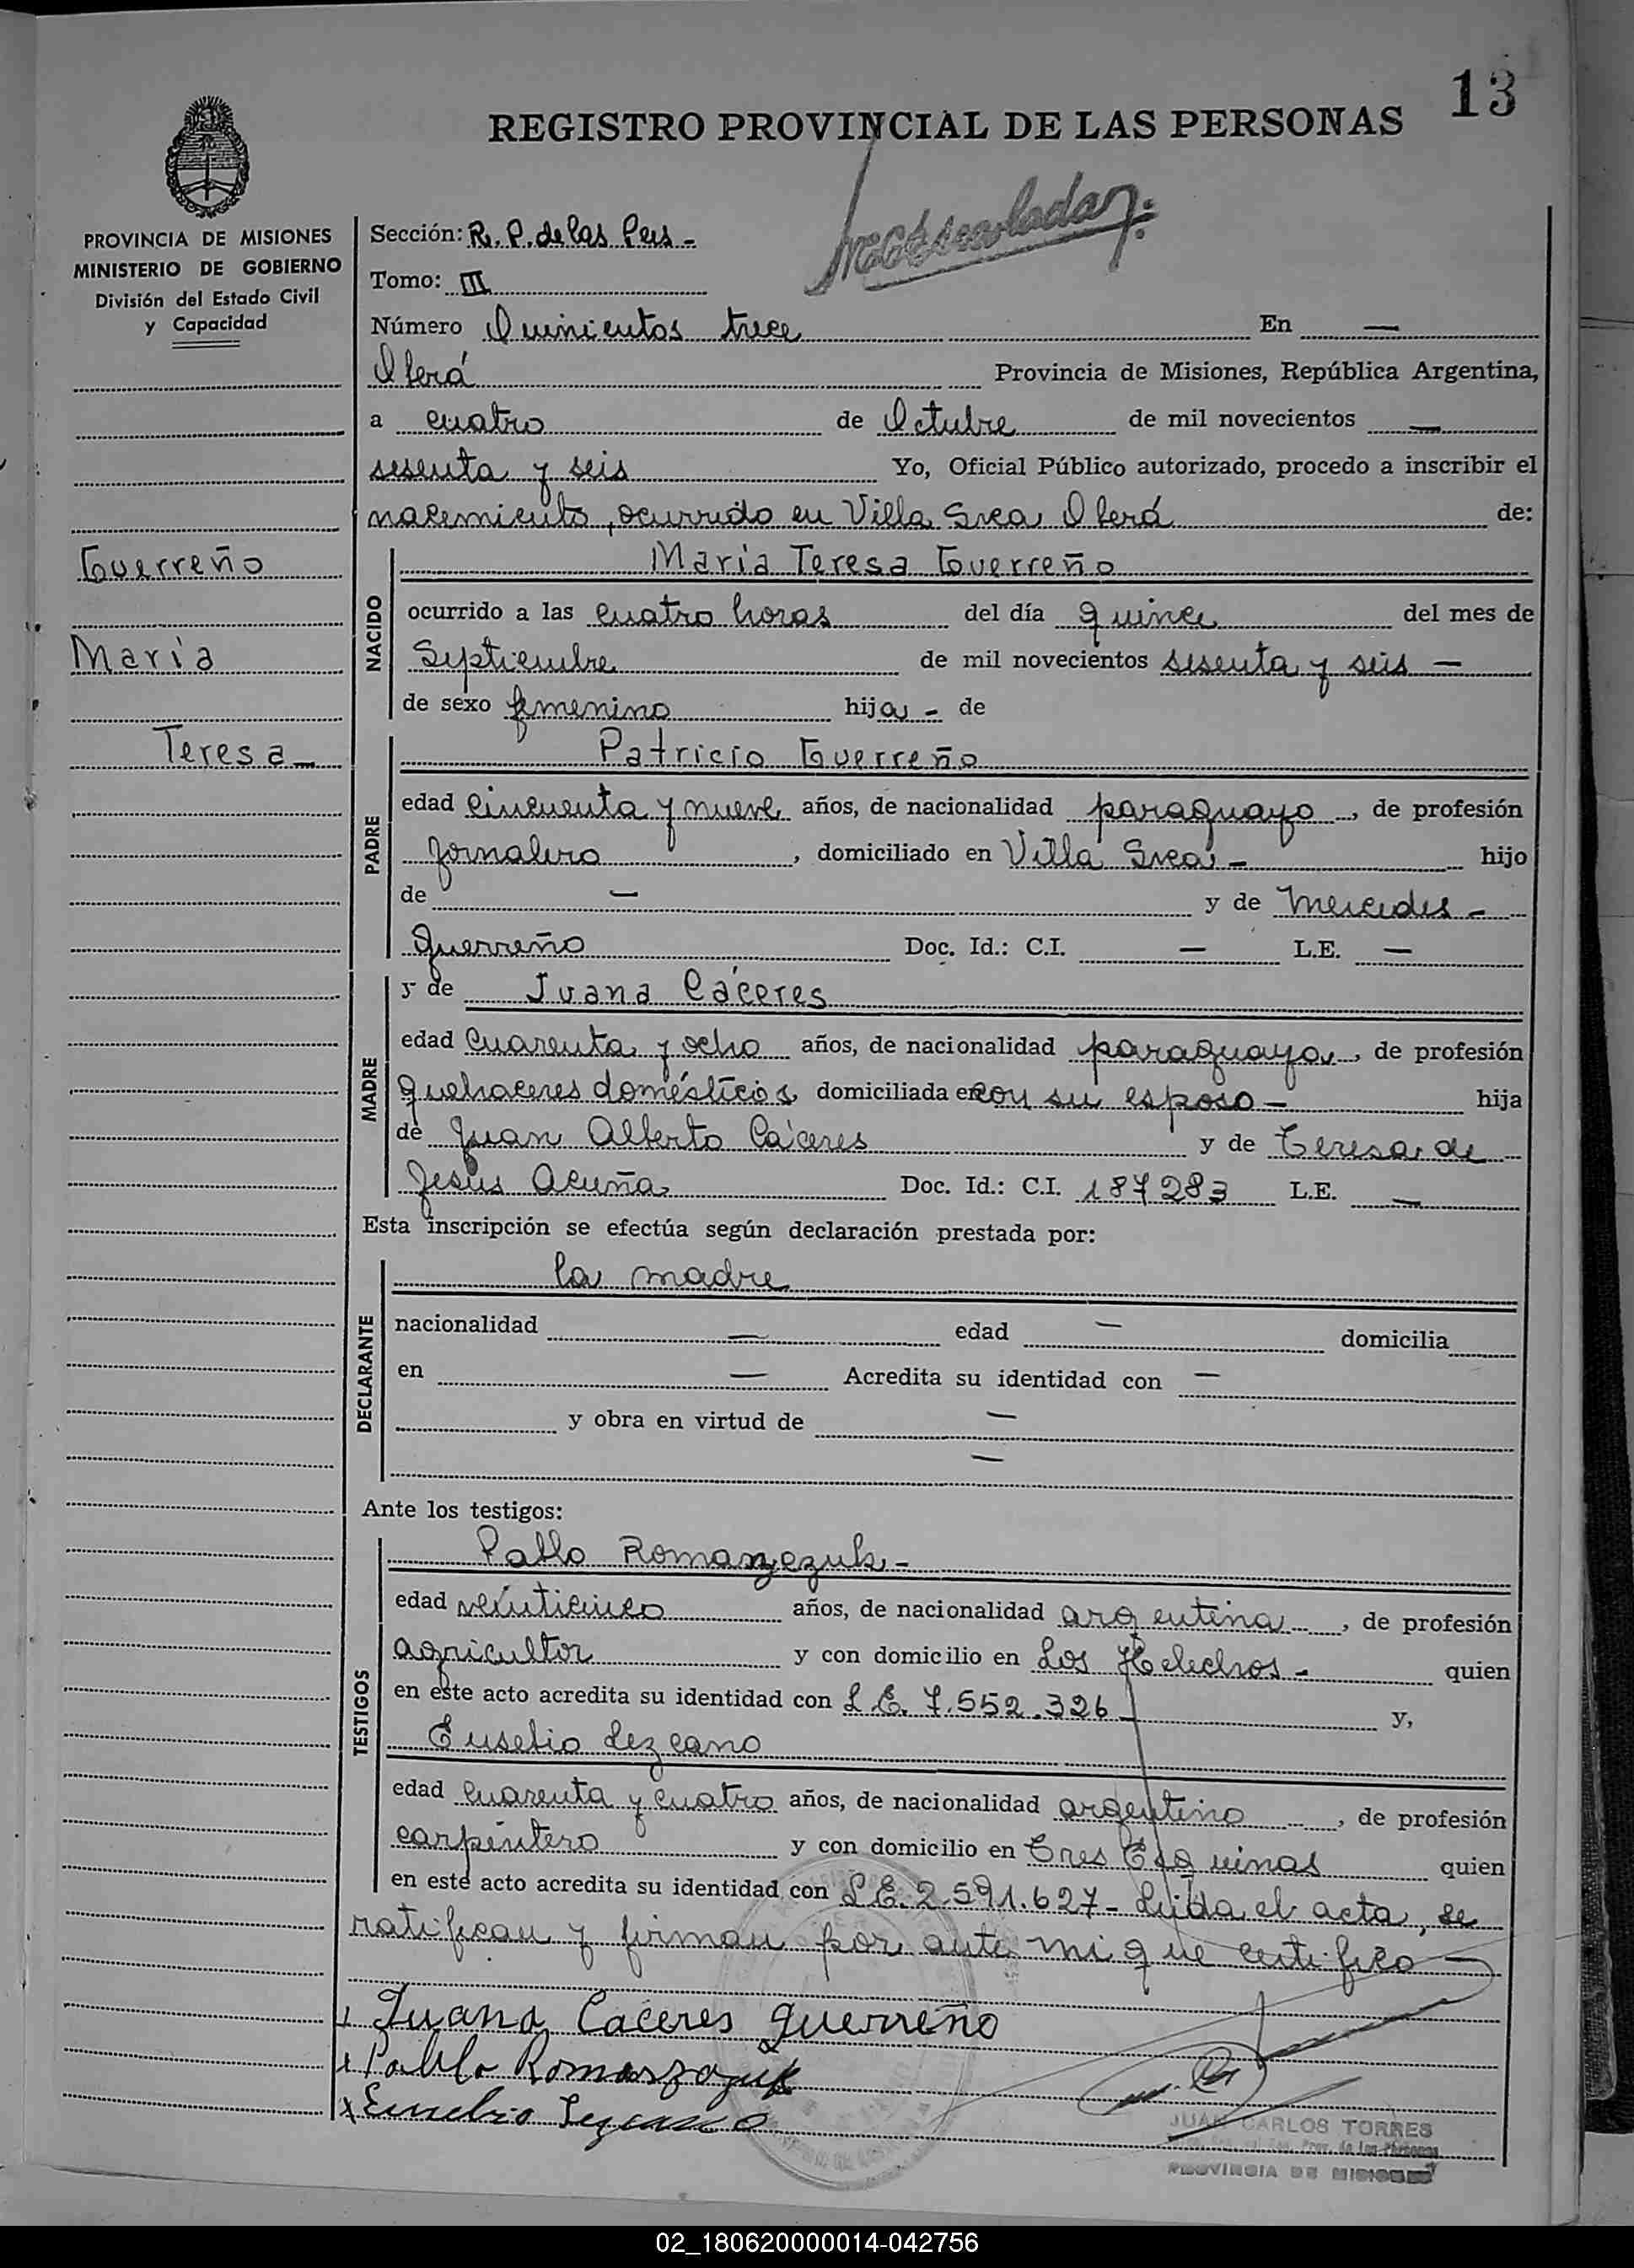 13
REGISTRO PROVINCIAL DE LAS PERSONAS
PROVINCIA DE MISIONES
MINISTERIO DE GOBIERNO
División del Estado Civil
y Capacidad
Guerreño
Maria
Teresa
Sección: R. P. de las Pers -
Tomo: III
Número Quinientos trece En —
Oberá Provincia de Misiones, República Argentina,
a cuatro de Octubre de mil novecientos —
sesenta y seis Yo, Oficial Público autorizado, procedo a inscribir el
nacemiento, ocurrido en Villa Svea, Oberá de:
NACIDO
Maria Teresa Guerreño
ocurrido a las cuatro horas del día quince del mes de
Septiembre de mil novecientos sesenta y seis —
de sexo femenino hija - de
PADRE
Patricio Guerreño
edad cincuenta y nueve años, de nacionalidad paraguayo, de profesión
Jornalero, domiciliado en Villa Svea - hijo
de — y de Mercedes -
Guerreño Doc. Id.: C.I. — L.E. —
MADRE
y de Juana Cáceres
edad cuarenta y ocho años, de nacionalidad paraguaya, de profesión
quehaceres domésticos, domiciliada en con su esposo - hija
de Juan Alberto Cáceres y de Teresa de
Jesús Acuña Doc. Id.: C.I. 187283 L.E. —
Esta inscripción se efectúa según declaración prestada por:
DECLARANTE
la madre
nacionalidad — edad — domicilia
en — Acredita su identidad con —
y obra en virtud de —
—
Ante los testigos:
TESTIGOS
Pablo Romanzezuk -
edad veinticinco años, de nacionalidad argentina, de profesión
agricultor y con domicilio en Los Helechos - quien
en este acto acredita su identidad con L.E. 7.552.326 y,
Eusebio Lezcano
edad cuarenta y cuatro años, de nacionalidad argentino, de profesión
carpintero y con domicilio en Tres Esquinas quien
en este acto acredita su identidad con L.E. 2.591.627 - Leída el acta, se
ratifican y firman por ante mi que certifico —
Juana Caceres guerreño
Pablo Romanzazuk
Eusebio Lezcano
JUAN CARLOS TORRES
PROVINCIA DE MISIONES
02_180620000014-042756